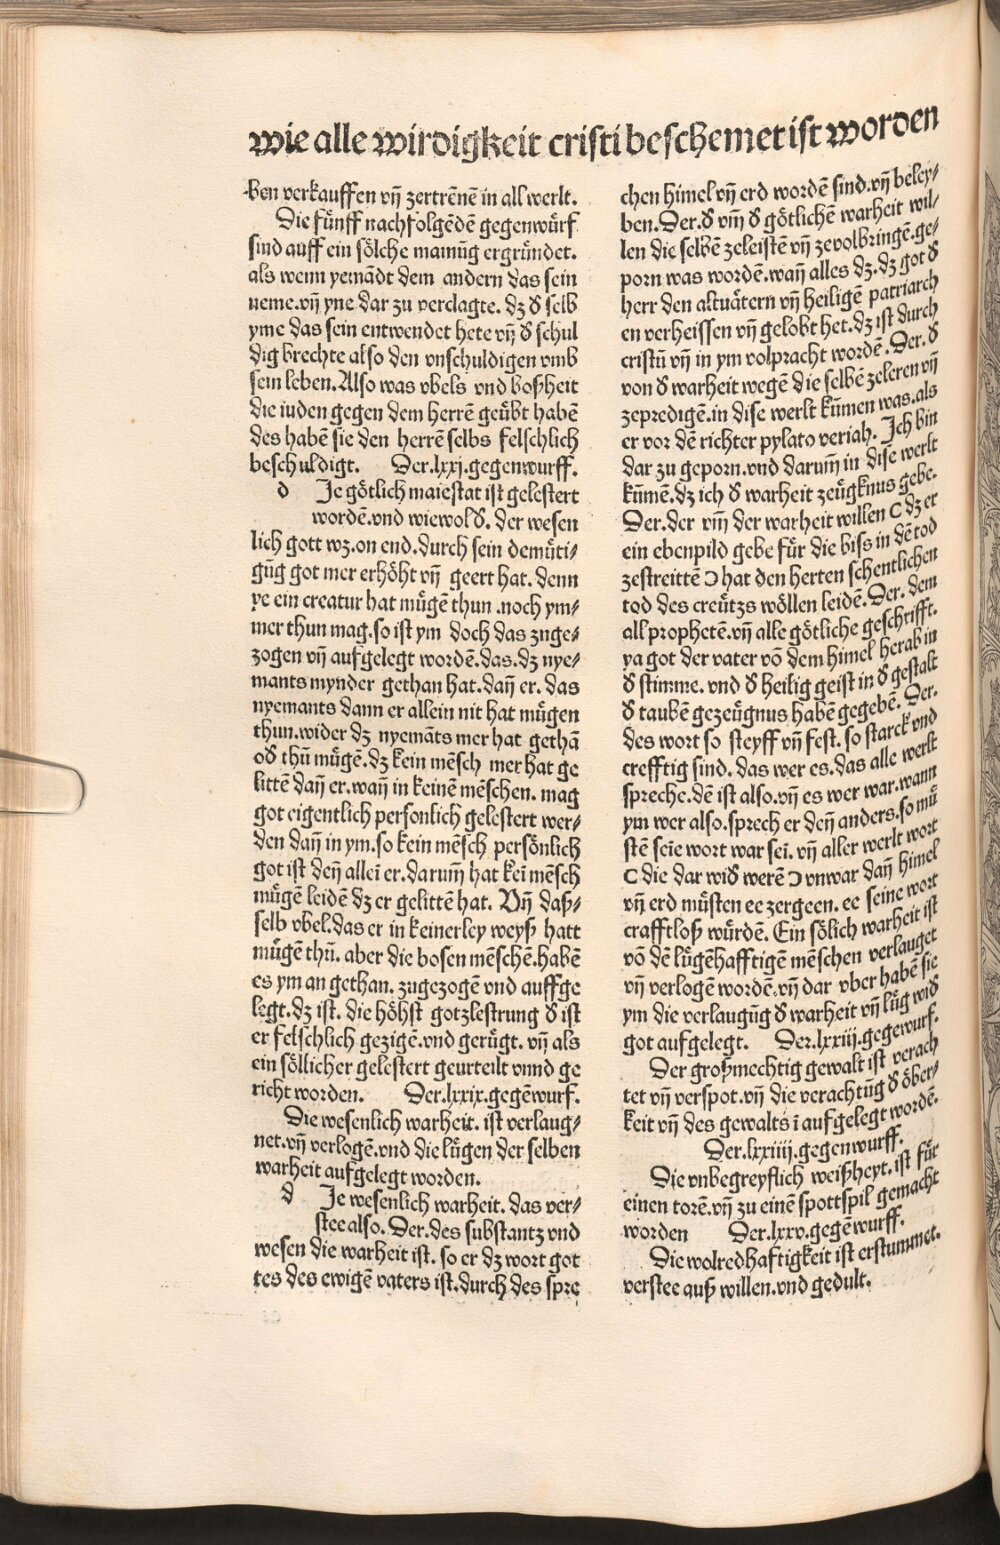 wie alle wirdigkeit cristi beschemet ist worden
ben verkauffen vñ zertrēnē in all werlt.
Die fünff nachfolgēdē gegenwürf
sind auff ein sölche mainūg ergründet.
als wenn yemādt dem andern das sein
neme. vñ yne dar zu verclagte. dz d selb
yme das sein entwendet hete vñ d schul
dig brechte also den vnschuldigen vmb
sein leben. Also was vbels vnd boßheit
die iuden gegen dem herrē geübt habē
des habē sie den herrē selbs felschlich
beschuldigt. Der. lxxj. gegenwurff.
d Je götlich maiestat ist gelestert
wordē. vnd wiewol d. der wesen
lich gott wz. on end. durch sein demüti/
gūg got mer erhöht vñ geert hat. denn
ye ein creatur hat mügē thun. noch ym/
mer thun mag. so ist ym doch das zuge/
zogen vñ aufgelegt wordē. das. dz nye/
mants mynder gethan hat. dañ er. das
nyemants dann er allein nit hat mügen
thun. wider dz nyemāts mer hat gethā
od thū mügē. dz kein mēsch mer hat ge
littē dañ er. wañ in keinē mēschen. mag
got eigentlich persönlich gelestert wer/
den dañ in ym. so kein mēsch persönlich
got ist deñ alleī er. darum̄ hat keī mēsch
mügē leidē dz er gelittē hat. Vñ daß/
selb vbel. das er in keinerley weyß hatt
mügē thū. aber die bosen mēschē. habē
es ym an gethan. zugezogē vnd auffge
legt. dz ist. die höhst gotzlestrung d ist
er felschlich gezigē. vnd gerügt. vñ als
ein söllicher gelestert geurteilt vnnd ge
richt worden. Der. lxxix. gegēwurf.
Die wesenlich warheit. ist verlaug/
net. vñ verlogē. vnd die lügen der selben
warheit aufgelegt worden.
d Je wesenlich warheit. das ver/
stee also. Der. des substantz vnd
wesen die warheit ist. so er dz wort got
tes des ewigē vaters ist. durch des spre
chen himel vñ erd wordē sind. vñ beley/
ben. Der. d vm̄ d götlichē warheit wil/
len die selbē zeleistē vñ zevolbringē. ge/
porn was wordē. wañ alles dz. dz got d
herr den altuätern vñ heiligē patriarch
en verheissen vñ gelobt het. dz ist durch
cristū vñ in ym volpracht wordē. Der. d
von d warheit wegē die selbē zeleren vñ
zepredigē. in dise werlt kūmen was. als
er vor dē richter pylato veriah. Ich bin
dar zu geporn. vnd darum̄ in dise werlt
kūmē. dz ich d warheit zeügknus gebe.
Der. der vm̄ der warheit willen C dz er
ein ebenpild gebe für die biss in dē tod
zestreittē Ɔ hat den herten schentlichen
tod des creützs wöllen leidē. Der. dem
all prophetē. vñ alle götliche geschrifft.
ya got der vater vō dem himel herab in
d stimme. vnd d heilig geist in d gestalt
d taubē gezeügnus habē gegebē. Der.
des wort so steyff vñ fest. so starck vnd
crefftig sind. das wer es. das alle werlt
spreche. dē ist also. vñ es wer war. wann
ym wer also. sprech er deñ anders. so mü
stē seīe wort war seī. vñ aller werlt wort
C die dar wid werē Ɔ vnwar dañ himel
vñ erd müsten ee zergeen. ee seine wort
crafftloß würdē. Ein sölich warheit ist
vō dē lügēhafftigē mēschen verlauget
vñ verlogen wordē. vñ dar vber habē sie
ym die verlaugūg d warheit vñ lüg wid
got aufgelegt. Der. lxxiij. gegēwurf.
Der großmechtig gewalt ist verach
tet vñ verspot. vñ die verachtūg d öber/
keit vñ des gewalts ī aufgelegt wordē.
Der. lxxiiij. gegenwurff.
Die vnbegreyflich weißheyt. ist für
einen torē. vñ zu einē spottspil gemacht
worden Der. lxxv. gegēwurff.
Die wolredhaftigkeit ist erstummet.
verstee auß willen. vnd gedult.